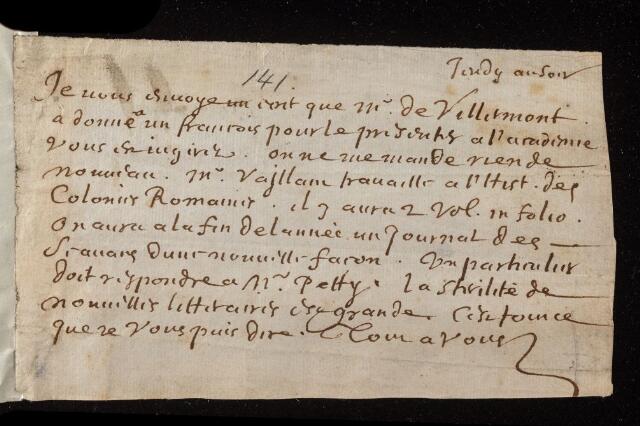 Jeudy au soir
141.
Je vous envoye un ecrit que Mr. de Villermont
a donné a un francois pour le presenter a l'academie
vous en jugerez. on ne me mande rien de
nouveau. Mr. Vaillant travaille a l'Hist. des
Colonies Romaines. il y aura 2 Vol. in folio.
On aura a la fin de l'année un Journal des
Scavans d'une nouvelle facon. Un particulier
doit respondre a Mr. Petty. la sterilité de
nouvelles litteraires est grande. C'est tout ce
que je Vous puis dire. Tout a Vous